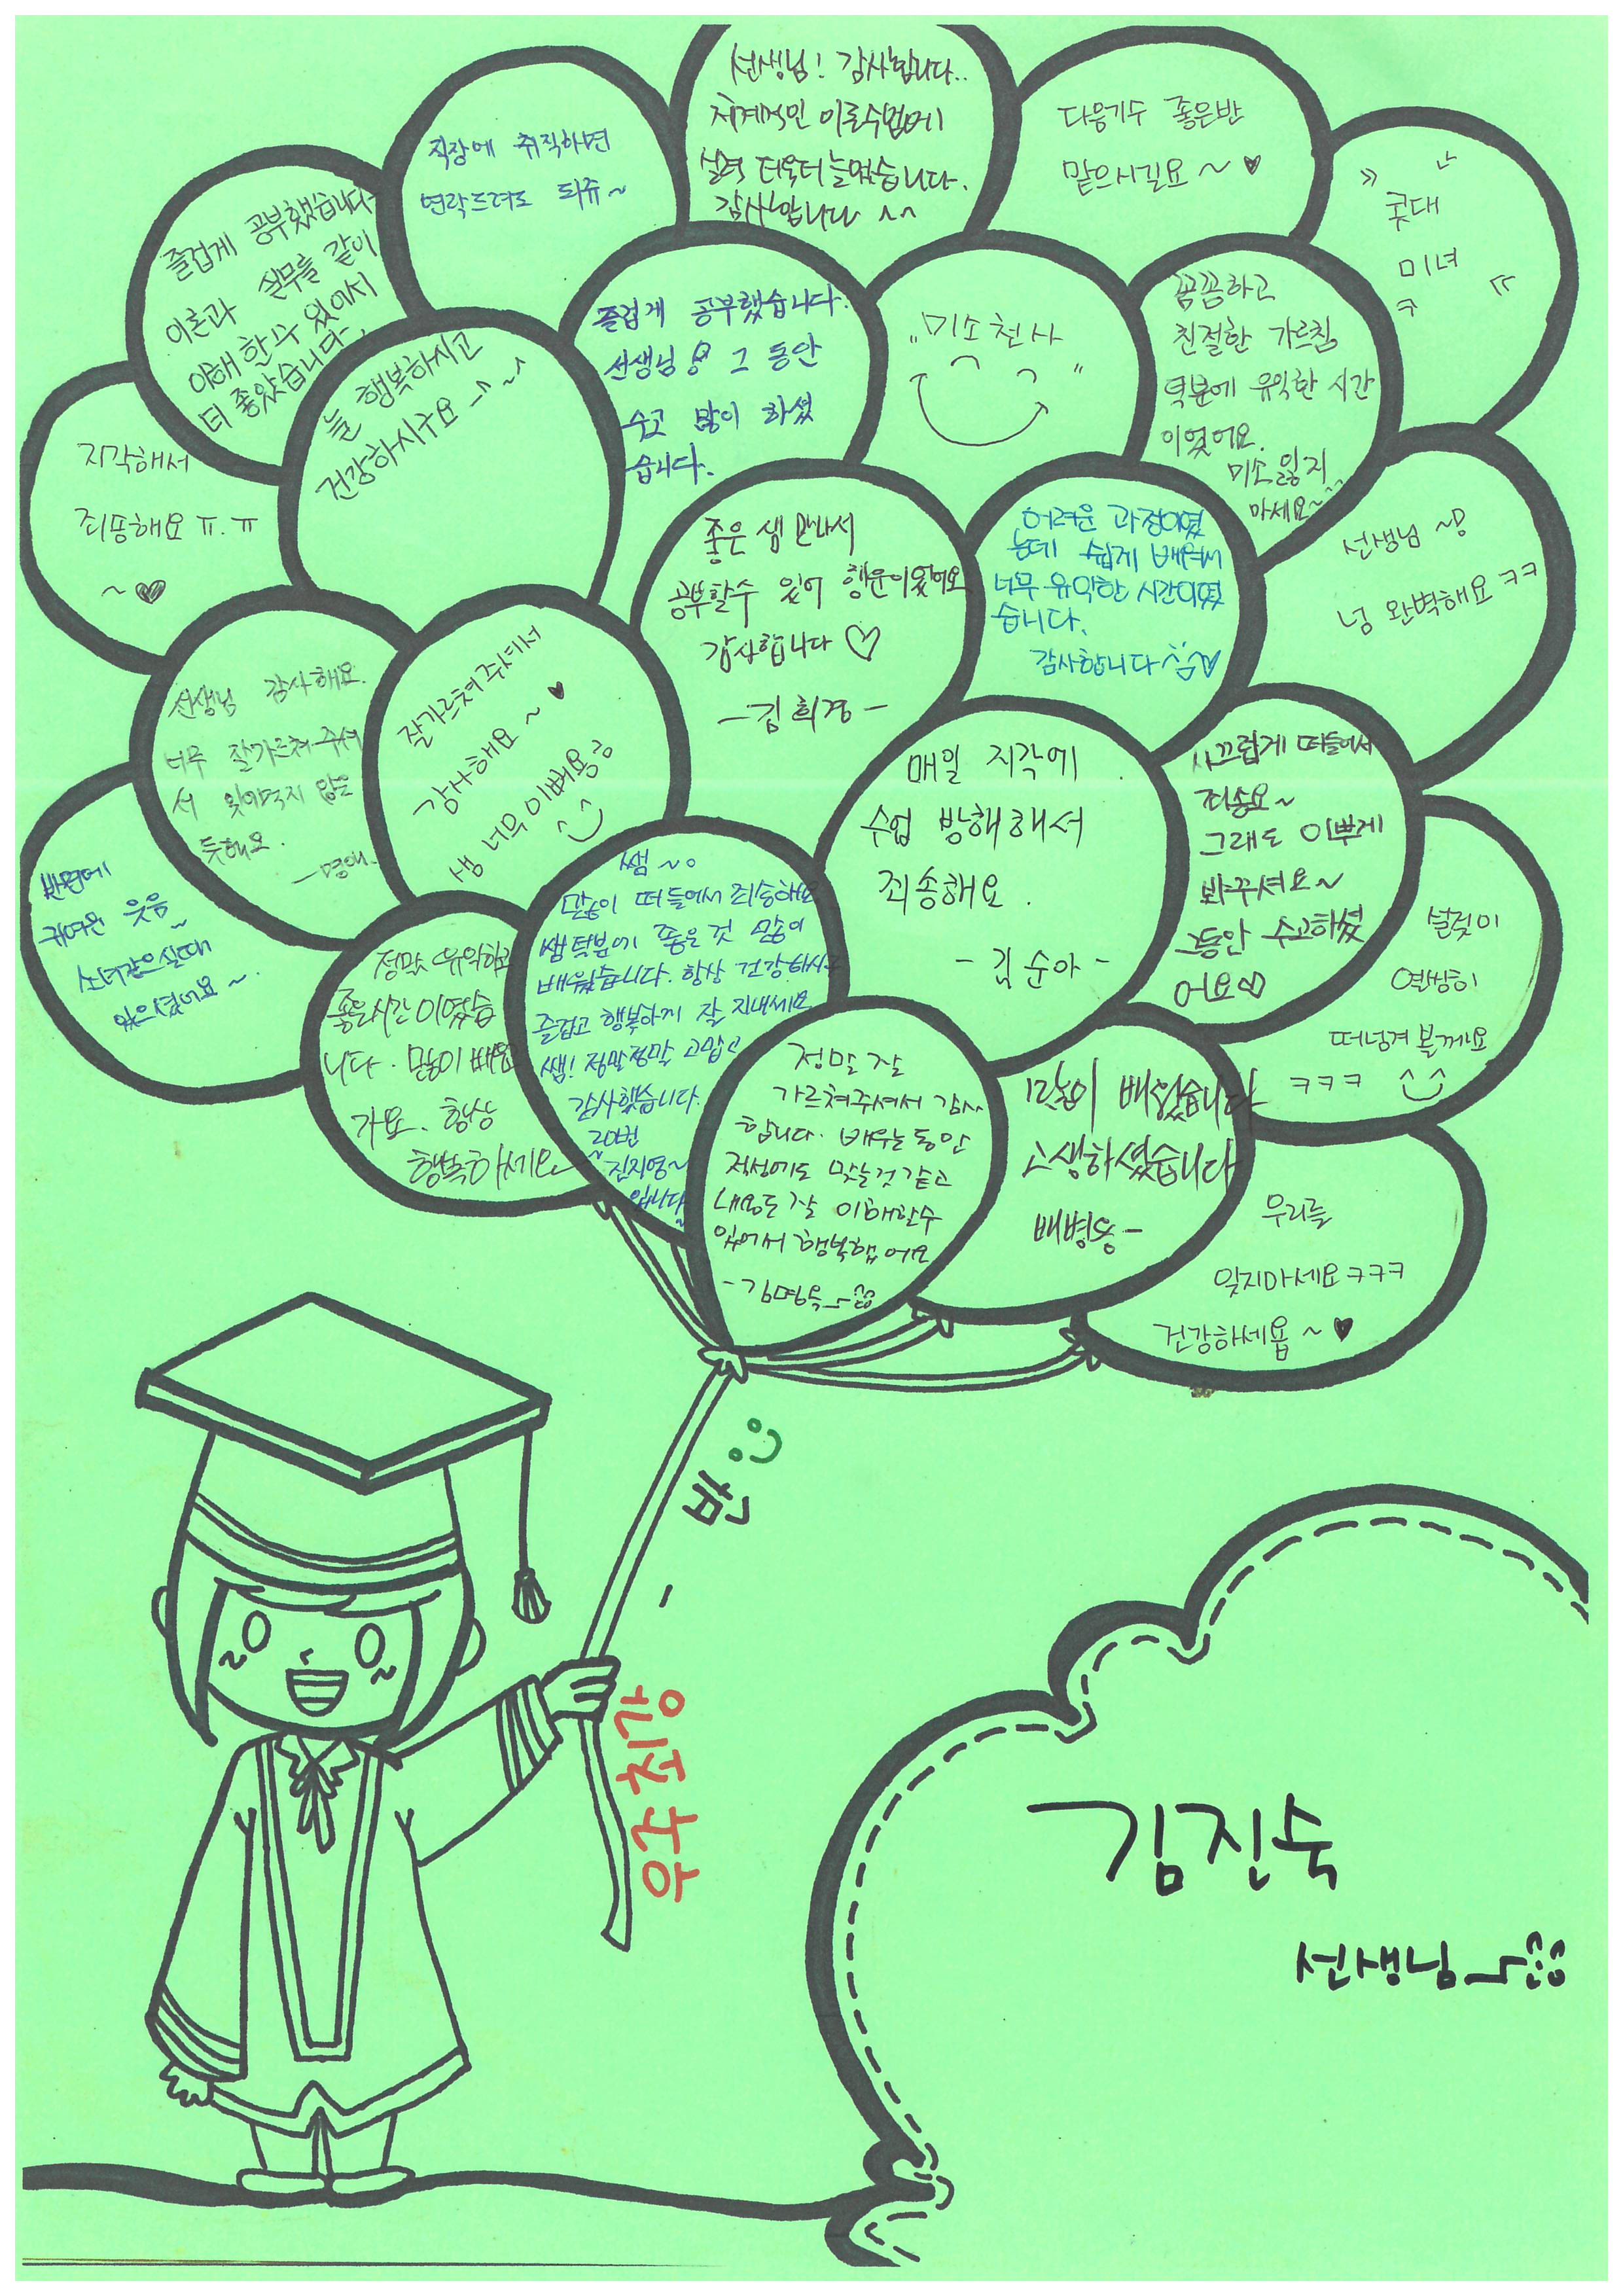 선생님! 감사합니다..
체계적인 이론수업에
실력 더욱더 늘었습니다.
감사합니다 ^^
다음기수 좋은반
맡으시길요~♥
직장에 취직하면
연락드려도 되쥬~
꽃대
미녀
ㅋ
즐겁게 공부했습니다
이론과 실무를 같이
이해 할수 있어서
더 좋았습니다.
즐겁게 공부했습니다.
선생님 그 동안
수고 많이 하셨
습니다.
"미소천사"
꼼꼼하고
친절한 가르침
덕분에 유익한 시간
이었어요.
미소 잃지
마세요~
늘 행복하시고
건강하시구요
지각해서
죄송해요 ㅠ.ㅠ
~♥
좋은 샘 만나서
공부할수 있어 행운이었어요
감사합니다 ♡
-김희경-
어려운 과정이였
는데 쉽게 배워서
너무 유익한 시간이였
습니다.
감사합니다
선생님~
넘 완벽해요 ㅋㅋ
선생님 감사해요.
너무 잘가르쳐주셔
서 잊어먹지 않은
듯해요.
-명애.
잘가르쳐주셔서
감사해요~♥
샘 너무 이뻐용
매일 지각에
수업 방해해서
죄송해요.
-김순아-
시끄럽게 떠들어서
죄송요~
그래도 이쁘게
봐주셔요~
그동안 수고하셨
어요♡
반전에
귀여운 웃음
소녀같으실때
있으셨어요~
쌤~
많이 떠들어서 죄송해요
쌤 덕분에 좋은 것 많이
배웠습니다. 항상 건강하시구
즐겁고 행복하게 잘 지내세요
쌤! 정말정말 고맙고
감사했습니다.
20번
진지영~
입니다
설젖이
연씸히
떠넘겨 볼께요
ㅋㅋㅋ
정말 유익하고
좋은시간 이였습
니다. 많이 배워
가요. 항상
행복하세요
정말 잘
가르쳐주셔서 감사
합니다. 배우는동안
적성에도 맞는것 같고
내용도 잘 이해할수
있어서 행복했어요
-김명옥
많이 배웠습니다
고생하셨습니다
배병용-
우리를
잊지마세요ㅋㅋㅋ
건강하세욥~♥
김진숙
선생님